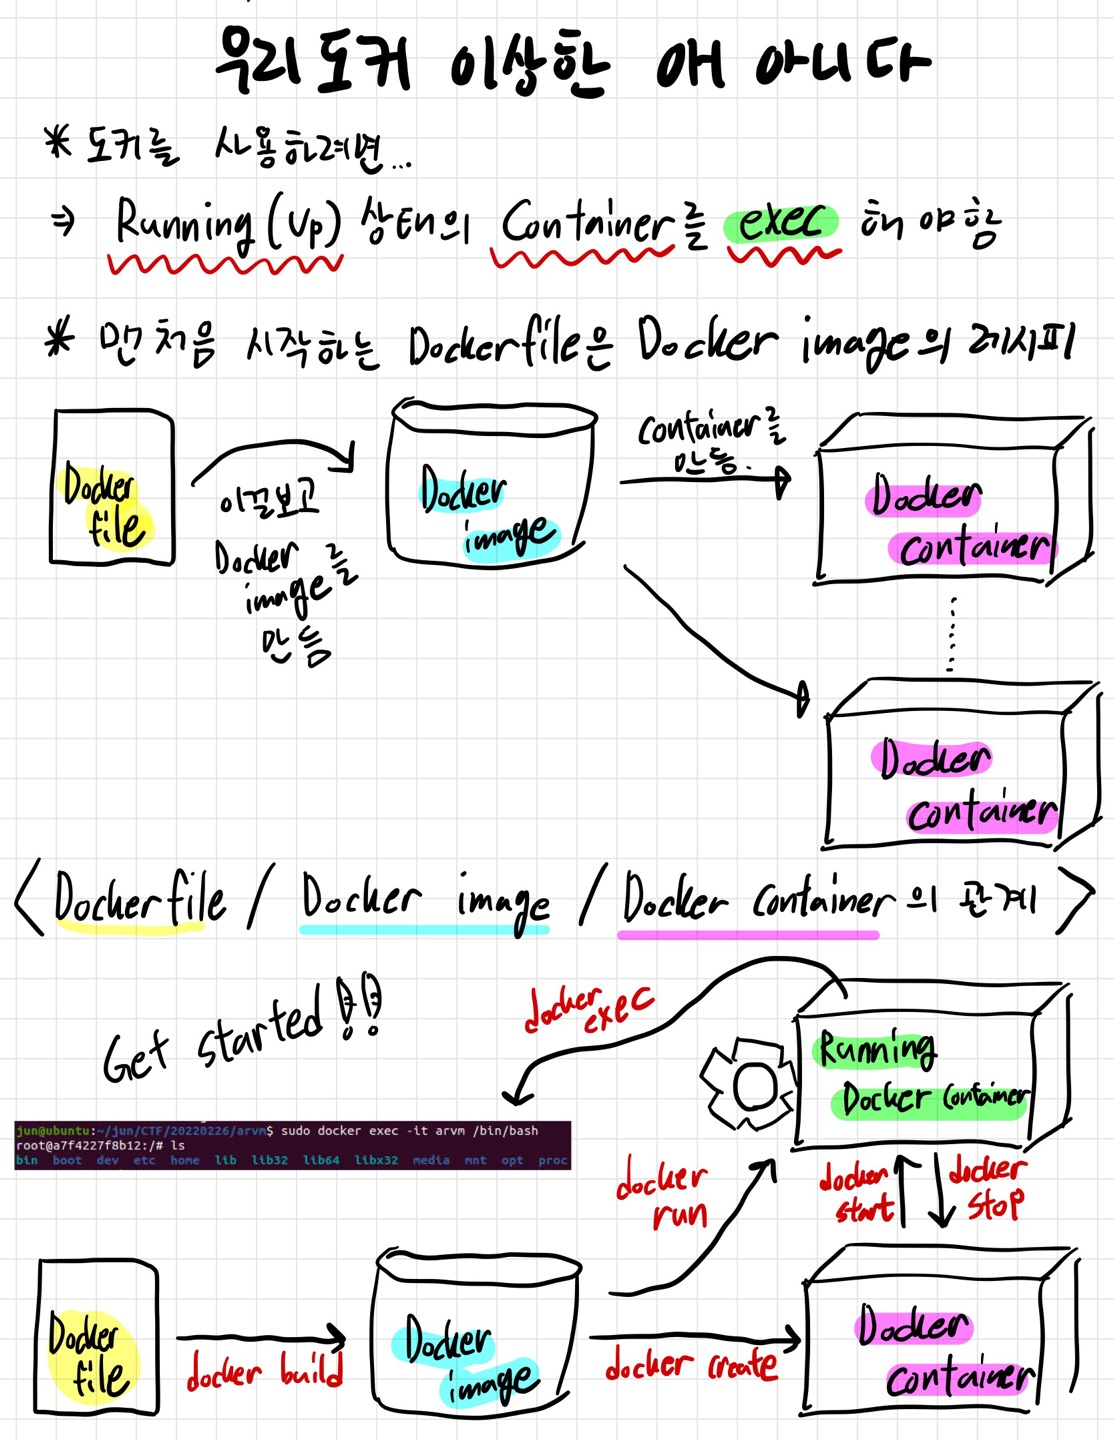 우리도커 이상한 애 아니다
* 도커를 사용하려면...
⇒ Running (Up) 상태의 Container를 exec 해야함
* 맨처음 시작하는 Dockerfile은 Docker image의 레시피
Docker
file
이걸보고
Docker
image를
만듬
Docker
image
Container를
만듬.
Docker
container
Docker
container
< Dockerfile / Docker image / Docker Container의 관계 >
Get started!!
docker
exec
Running
Docker Container
jun@ubuntu:~/jun/CTF/20220226/arvm$ sudo docker exec -it arvm /bin/bash
root@a7f4227f8b12:/# ls
bin boot dev etc home lib lib32 lib64 libx32 media mnt opt proc
docker
run
docker
start
docker
stop
Docker
file
docker build
Docker
image
docker create
Docker
container